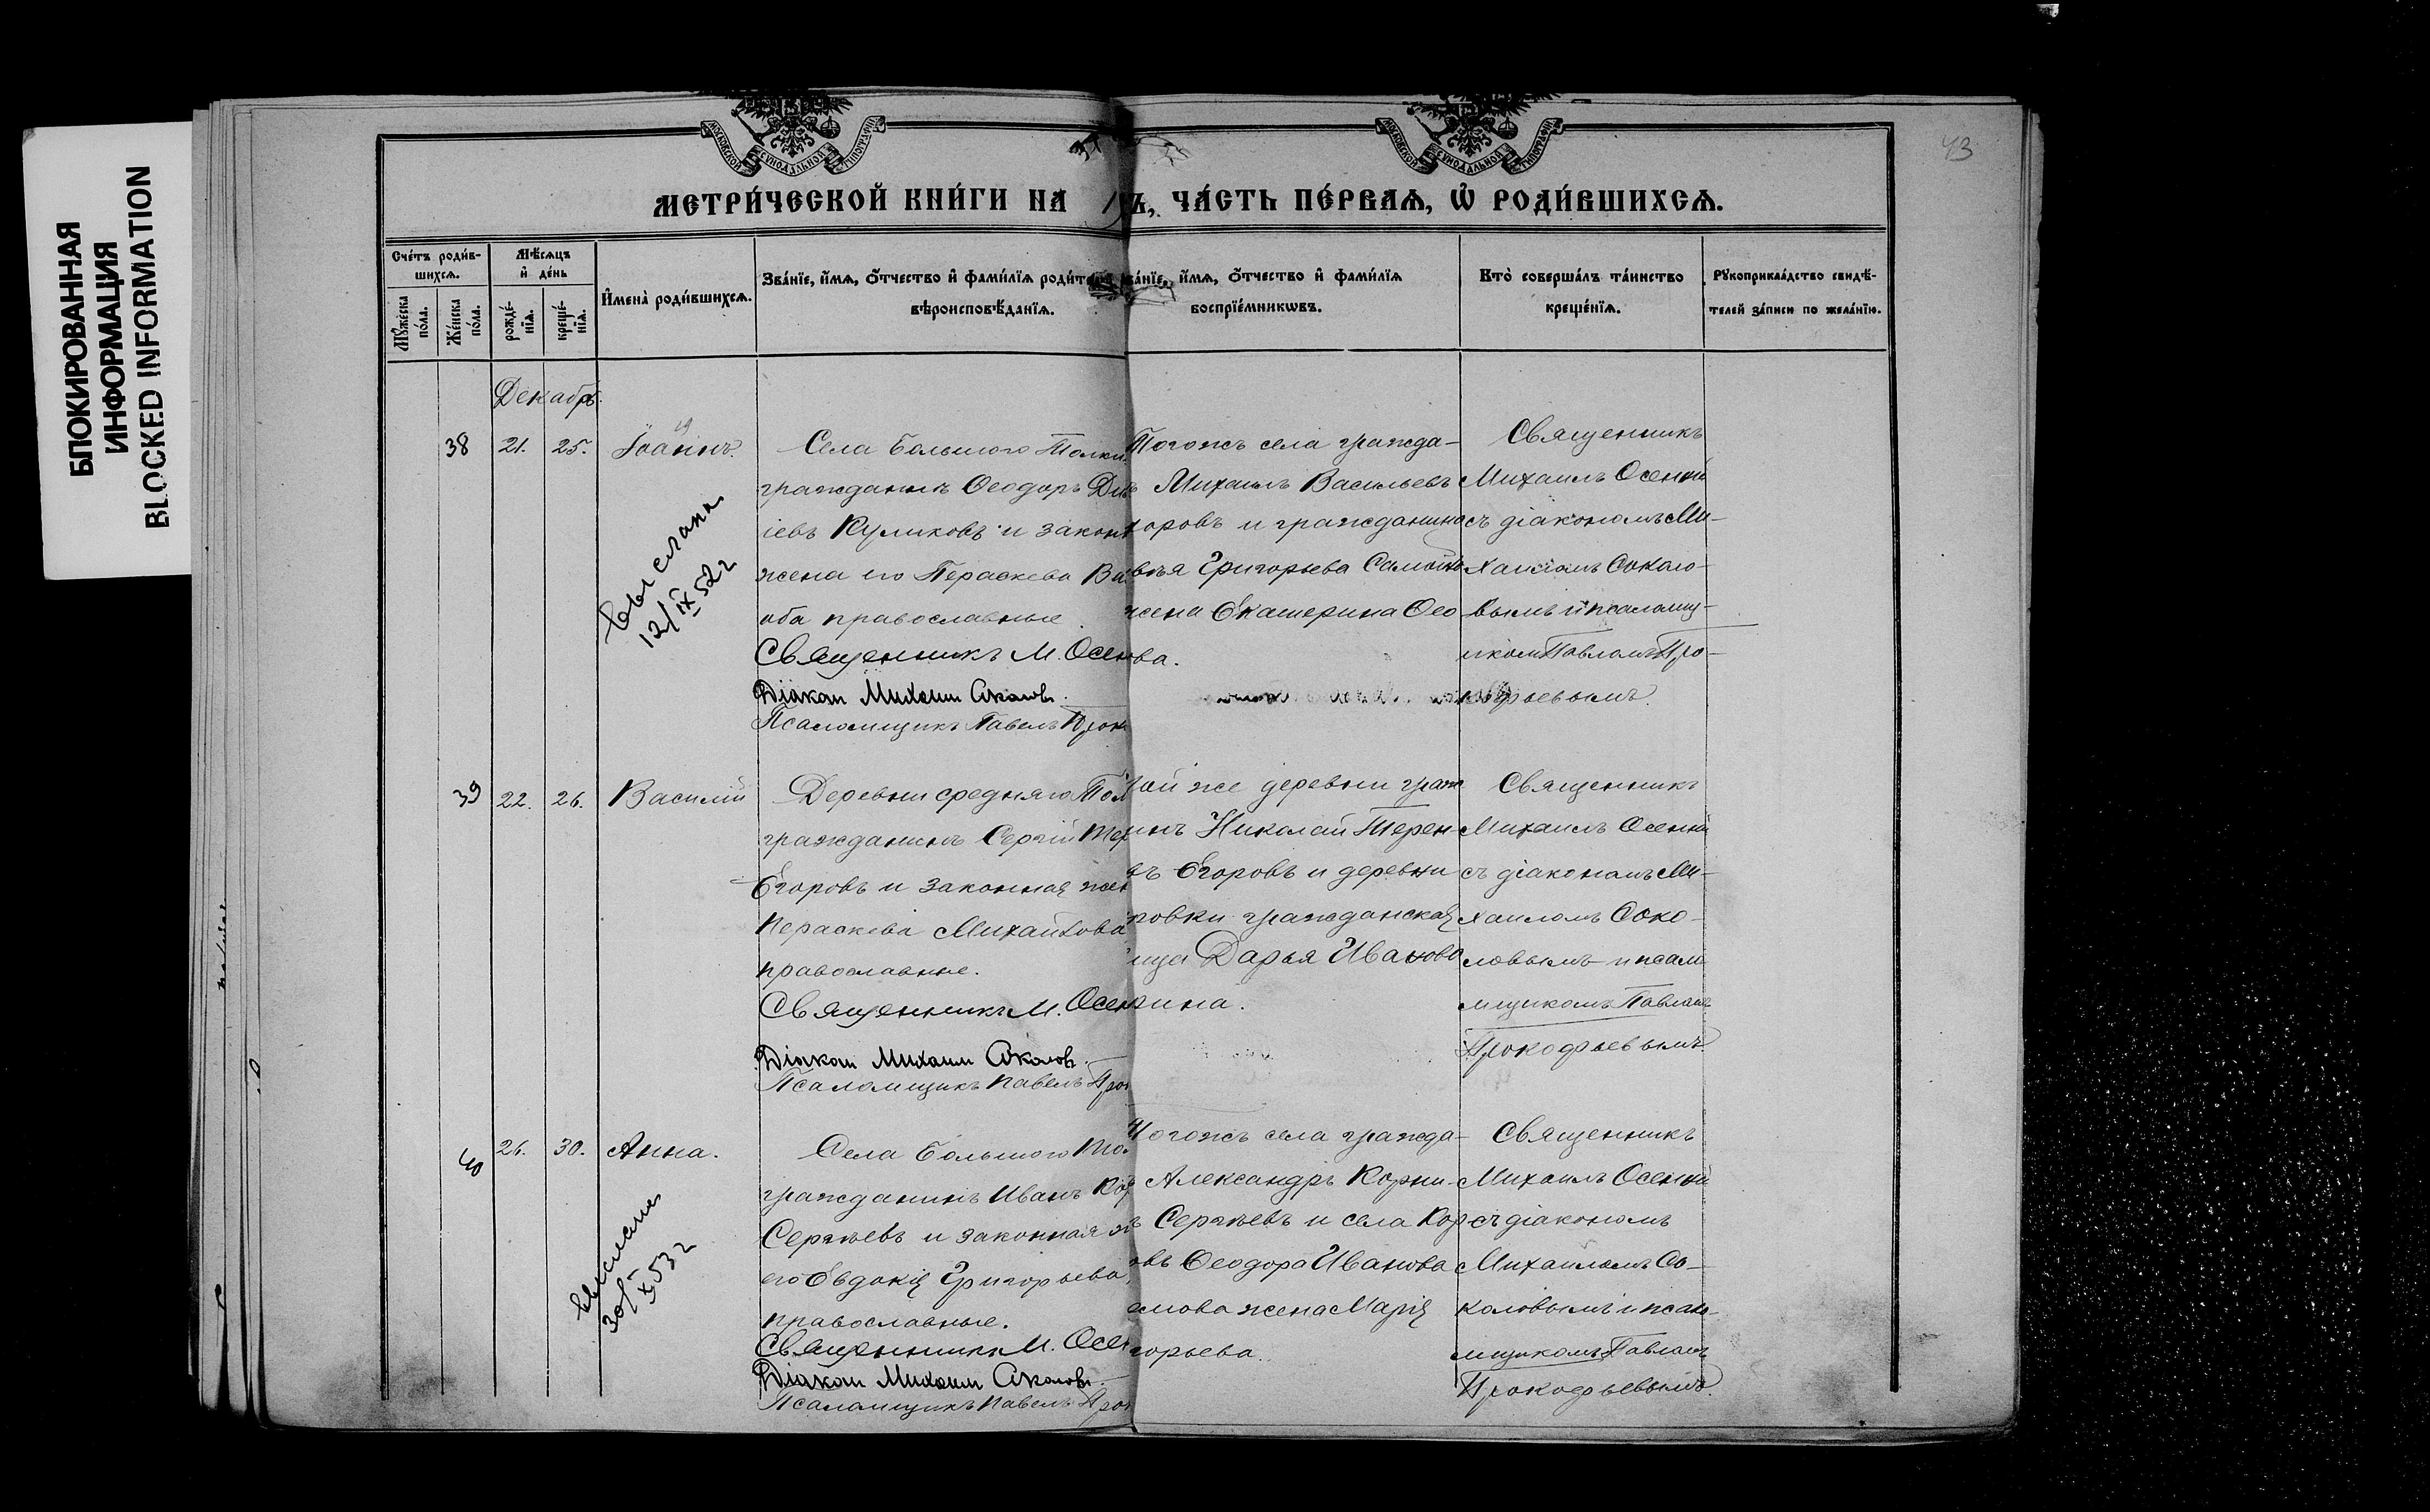 БЛОКИРОВАННАЯ
ИНФОРМАЦИЯ
BLOCKED INFORMATION
МОСКОВСКОЙ СѴНОДАЛЬНОЙ ТИПОГРАФІИ
МОСКОВСКОЙ СѴНОДАЛЬНОЙ ТИПОГРАФІИ
43
МЕТРИ́ЧЕСКОЙ КНИ́ГИ НА 19
Ъ, ЧА́СТЬ ПЕ́РВАѦ, Ѡ҆ РОДИ́ВШИХСѦ.
Сче́тъ роди́в-
шихсѧ.
Мꙋ́жеска
по́ла.
Же́нска
по́ла.
Мѣ́сѧцъ
и҆ де́нь
рожде́-
нїѧ.
креще́-
нїѧ.
И҆мена̀ роди́вшихсѧ.
Зва́нїе, и҆́мѧ, ѻ҆́тчество и҆ фами́лїѧ роди́тел
вѣроисповѣ́данїѧ.
ва́нїе, и҆́мѧ, ѻ҆́тчество и҆ фами́лїѧ
воспрїе́мникѡвъ.
Кто̀ соверша́лъ та́инство
креще́нїѧ.
Рꙋкоприкла́дство свидѣ́-
телей за́писи по жела́нїю.
Декабрь
38 21. 25. Іоаннъ.
Села Большого Толки
гражданинъ Ѳеодоръ Дм
іевъ Куликовъ и закон
жена его Пераскева Ва
оба православные.
Священникъ М. Осен
Діакон Михаил Соколовъ.
Псаломщикъ Павелъ Прок
Тогожъ села гражда-
ъ Михаилъ Васильевъ
оровъ и гражданина
вья Григорьева Самой
жена Екатерина Ѳео
ва.
Священникъ
Михаилъ Осенній
съ діакономъ Ми-
хаиломъ Соколо-
вымъ и псаломщ-
икомъ Павломъ Про-
кофьевымъ.
выслан
12/IX 52 г
39 22. 26. Василій
Деревни средняго Тол
гражданинъ Сергій Тер
Егоровъ и законная жен
Пераскева Михайлова
православные.
Священникъ М. Осен
Діакон Михаил Соколовъ.
Псаломщикъ Павелъ Про
Той же деревни граж
инъ Николай Терен-
ъ Егоровъ и деревни
ровки гражданская
ица Дарья Иванова
кина.
Священникъ
Михаилъ Осенній
съ діакономъ Ми-
хаиломъ Соко-
ловымъ и псало
мщикомъ Павломъ
Прокофьевымъ.
40 26. 30. Анна.
Села Большого То
гражданинъ Иванъ Кор
Сергѣевъ и законная ж
его Евдокія Григорьева,
православные.
Священникъ М. Осен
Діакон Михаил Соколовъ.
Псаломщикъ Павелъ Про
Тогожъ села гражда-
ъ Александръ Корни-
ъ Сергѣевъ и села Кор
овъ Ѳеодора Иванова
жена Марія
горьева.
Священникъ
Михаилъ Осенній
съ діакономъ
Михаиломъ Со-
коловымъ и псало-
мщикомъ Павломъ
Прокофьевымъ.
выслан
30/X 53 г